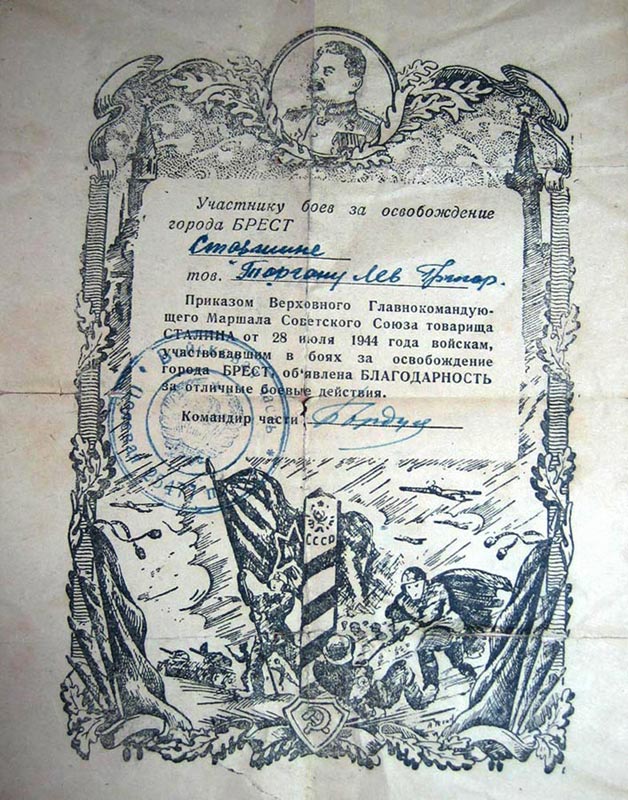 Участнику боев за освобождение
города БРЕСТ
Старшине
тов. Торгану Лев Григор.
Приказом Верховного Главнокомандую-
щего Маршала Советского Союза товарища
СТАЛИНА от 28 июля 1944 года войскам,
участвовавшим в боях за освобождение
города БРЕСТ, об'явлена БЛАГОДАРНОСТЬ
за отличные боевые действия.
Командир части
СССР